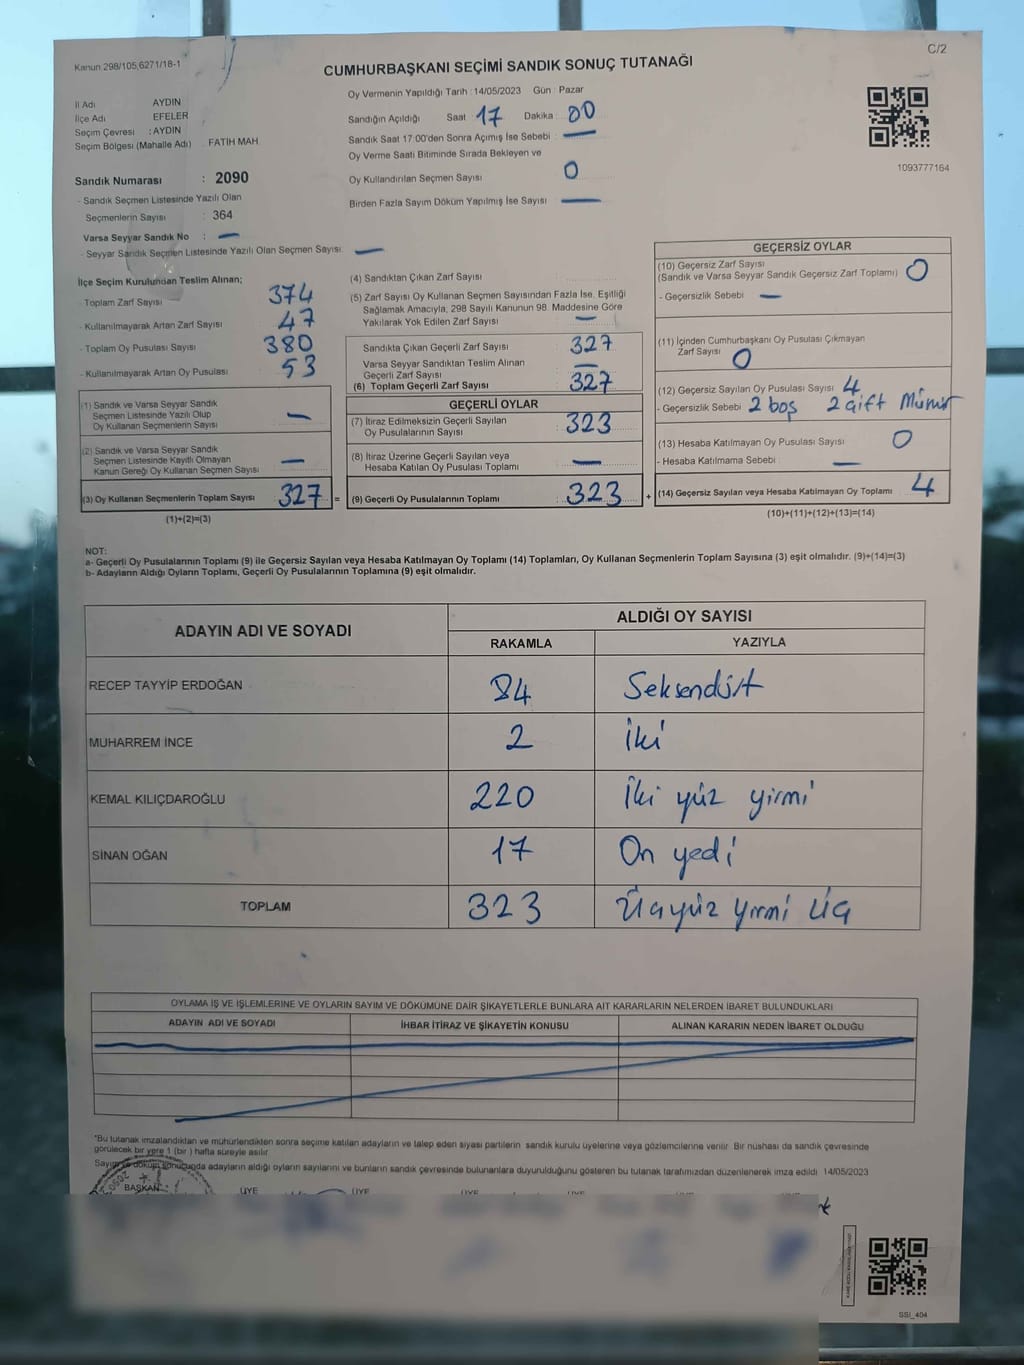 C/2
Kanun 298/105,6271/18-1
CUMHURBAŞKANI SEÇİMİ SANDIK SONUÇ TUTANAĞI
İl Adı AYDIN
İlçe Adı EFELER
Seçim Çevresi : AYDIN
Seçim Bölgesi (Mahalle Adı) FATİH MAH
Sandık Numarası : 2090
- Sandık Seçmen Listesinde Yazılı Olan
Seçmenlerin Sayısı : 364
Varsa Seyyar Sandık No : —
- Seyyar Sandık Seçmen Listesinde Yazılı Olan Seçmen Sayısı: —
Oy Vermenin Yapıldığı Tarih : 14/05/2023 Gün : Pazar
Sandığın Açıldığı Saat 17 Dakika 00
Sandık Saat 17:00'den Sonra Açımış İse Sebebi : —
Oy Verme Saati Bitiminde Sırada Bekleyen ve
Oy Kullandırılan Seçmen Sayısı : 0
Birden Fazla Sayım Döküm Yapılmış İse Sayısı : —
1093777164
İlçe Seçim Kurulundan Teslim Alınan;
- Toplam Zarf Sayısı 374
- Kullanılmayarak Artan Zarf Sayısı 47
- Toplam Oy Pusulası Sayısı 380
- Kullanılmayarak Artan Oy Pusulası 53
(1) Sandık ve Varsa Seyyar Sandık
Seçmen Listesinde Yazılı Olup
Oy Kullanan Seçmenlerin Sayısı —
(2) Sandık ve Varsa Seyyar Sandık
Seçmen Listesinde Kayıtlı Olmayan
Kanun Gereği Oy Kullanan Seçmen Sayısı —
(3) Oy Kullanan Seçmenlerin Toplam Sayısı 327 =
(1)+(2)=(3)
(4) Sandıktan Çıkan Zarf Sayısı
(5) Zarf Sayısı Oy Kullanan Seçmen Sayısından Fazla İse, Eşitliği
Sağlamak Amacıyla, 298 Sayılı Kanunun 98. Maddesine Göre
Yakılarak Yok Edilen Zarf Sayısı —
Sandıkta Çıkan Geçerli Zarf Sayısı : 327
Varsa Seyyar Sandıktan Teslim Alınan
Geçerli Zarf Sayısı —
(6) Toplam Geçerli Zarf Sayısı 327
GEÇERLİ OYLAR
(7) İtiraz Edilmeksizin Geçerli Sayılan
Oy Pusulalarının Sayısı 323
(8) İtiraz Üzerine Geçerli Sayılan veya
Hesaba Katılan Oy Pusulası Toplamı —
(9) Geçerli Oy Pusulalarının Toplamı : 323 +
GEÇERSİZ OYLAR
(10) Geçersiz Zarf Sayısı
(Sandık ve Varsa Seyyar Sandık Geçersiz Zarf Toplamı) 0
- Geçersizlik Sebebi : —
(11) İçinden Cumhurbaşkanı Oy Pusulası Çıkmayan
Zarf Sayısı 0
(12) Geçersiz Sayılan Oy Pusulası Sayısı 4
- Geçersizlik Sebebi 2 boş 2 çift Mühür
(13) Hesaba Katılmayan Oy Pusulası Sayısı 0
- Hesaba Katılmama Sebebi : —
(14) Geçersiz Sayılan veya Hesaba Katılmayan Oy Toplamı 4
(10)+(11)+(12)+(13)=(14)
NOT:
a- Geçerli Oy Pusulalarının Toplamı (9) ile Geçersiz Sayılan veya Hesaba Katılmayan Oy Toplamı (14) Toplamları, Oy Kullanan Seçmenlerin Toplam Sayısına (3) eşit olmalıdır. (9)+(14)=(3)
b- Adayların Aldığı Oyların Toplamı, Geçerli Oy Pusulalarının Toplamına (9) eşit olmalıdır.
ADAYIN ADI VE SOYADI
ALDIĞI OY SAYISI
RAKAMLA YAZIYLA
RECEP TAYYİP ERDOĞAN 84 Seksendört
MUHARREM İNCE 2 İki
KEMAL KILIÇDAROĞLU 220 İki yüz yirmi
SİNAN OĞAN 17 On yedi
TOPLAM 323 Üçyüz yirmi üç
OYLAMA İŞ VE İŞLEMLERİNE VE OYLARIN SAYIM VE DÖKÜMÜNE DAİR ŞİKAYETLERLE BUNLARA AİT KARARLARIN NELERDEN İBARET BULUNDUKLARI
ADAYIN ADI VE SOYADI İHBAR İTİRAZ VE ŞİKAYETİN KONUSU ALINAN KARARIN NEDEN İBARET OLDUĞU
"Bu tutanak imzalandıktan ve mühürlendikten sonra seçime katılan adayların ve talep eden siyasi partilerin sandık kurulu üyelerine veya gözlemcilerine verilir. Bir nüshası da sandık çevresinde
görülecek bir yere 1 (bir) hafta süreyle asılır
Sayım ve döküm sonucunda adayların aldığı oyların sayılarını ve bunların sandık çevresinde bulunanlara duyurulduğunu gösteren bu tutanak tarafımızdan düzenlenerek imza edildi 14/05/2023
BAŞKAN ÜYE ÜYE ÜYE ÜYE
SSI_404